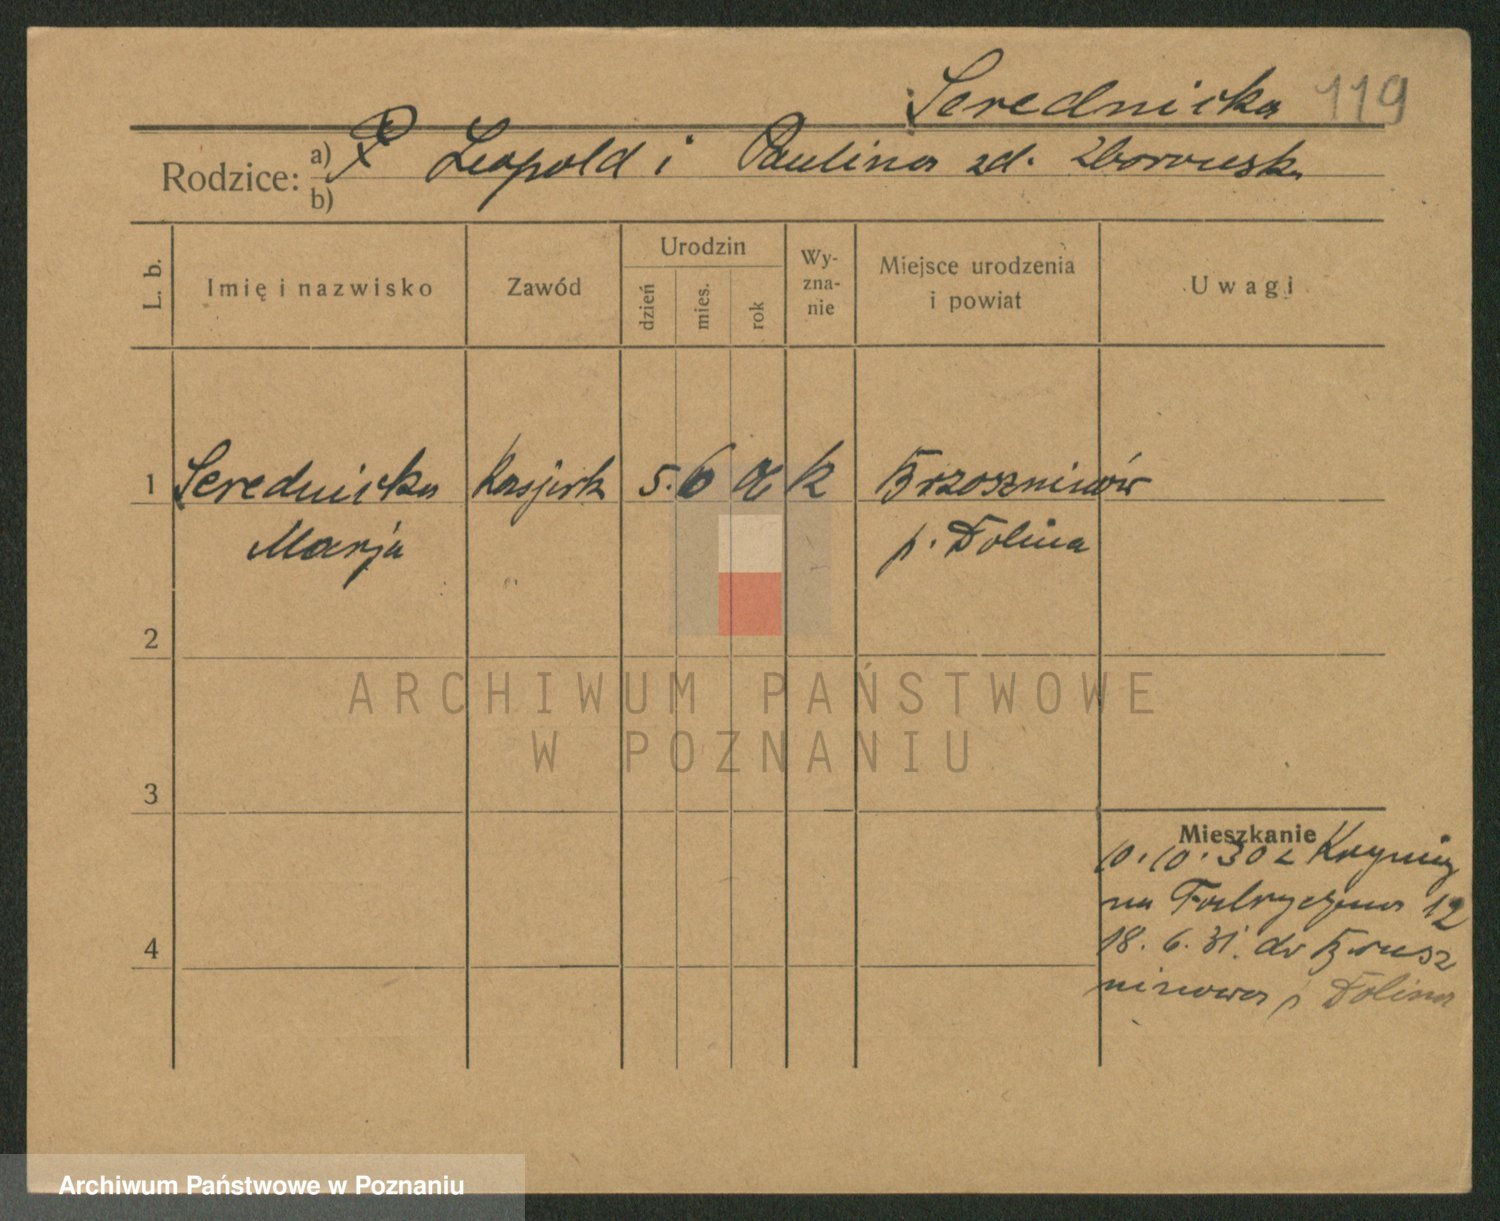 Serednicka 119
Rodzice: a) Leopold i Paulina zd. Zborowsk
b)
L. b. Imię i nazwisko Zawód Urodzin dzień mies. rok Wy-zna-nie Miejsce urodzenia i powiat Uwagi
1 Serednicka 5. 6 k
Marja p. Dolina
2
ARCHIWUM PAŃSTWOWE
W POZNANIU
3
Mieszkanie
10.10.30 z
na 12
4 18.6.31. do
Dolina
Archiwum Państwowe w Poznaniu